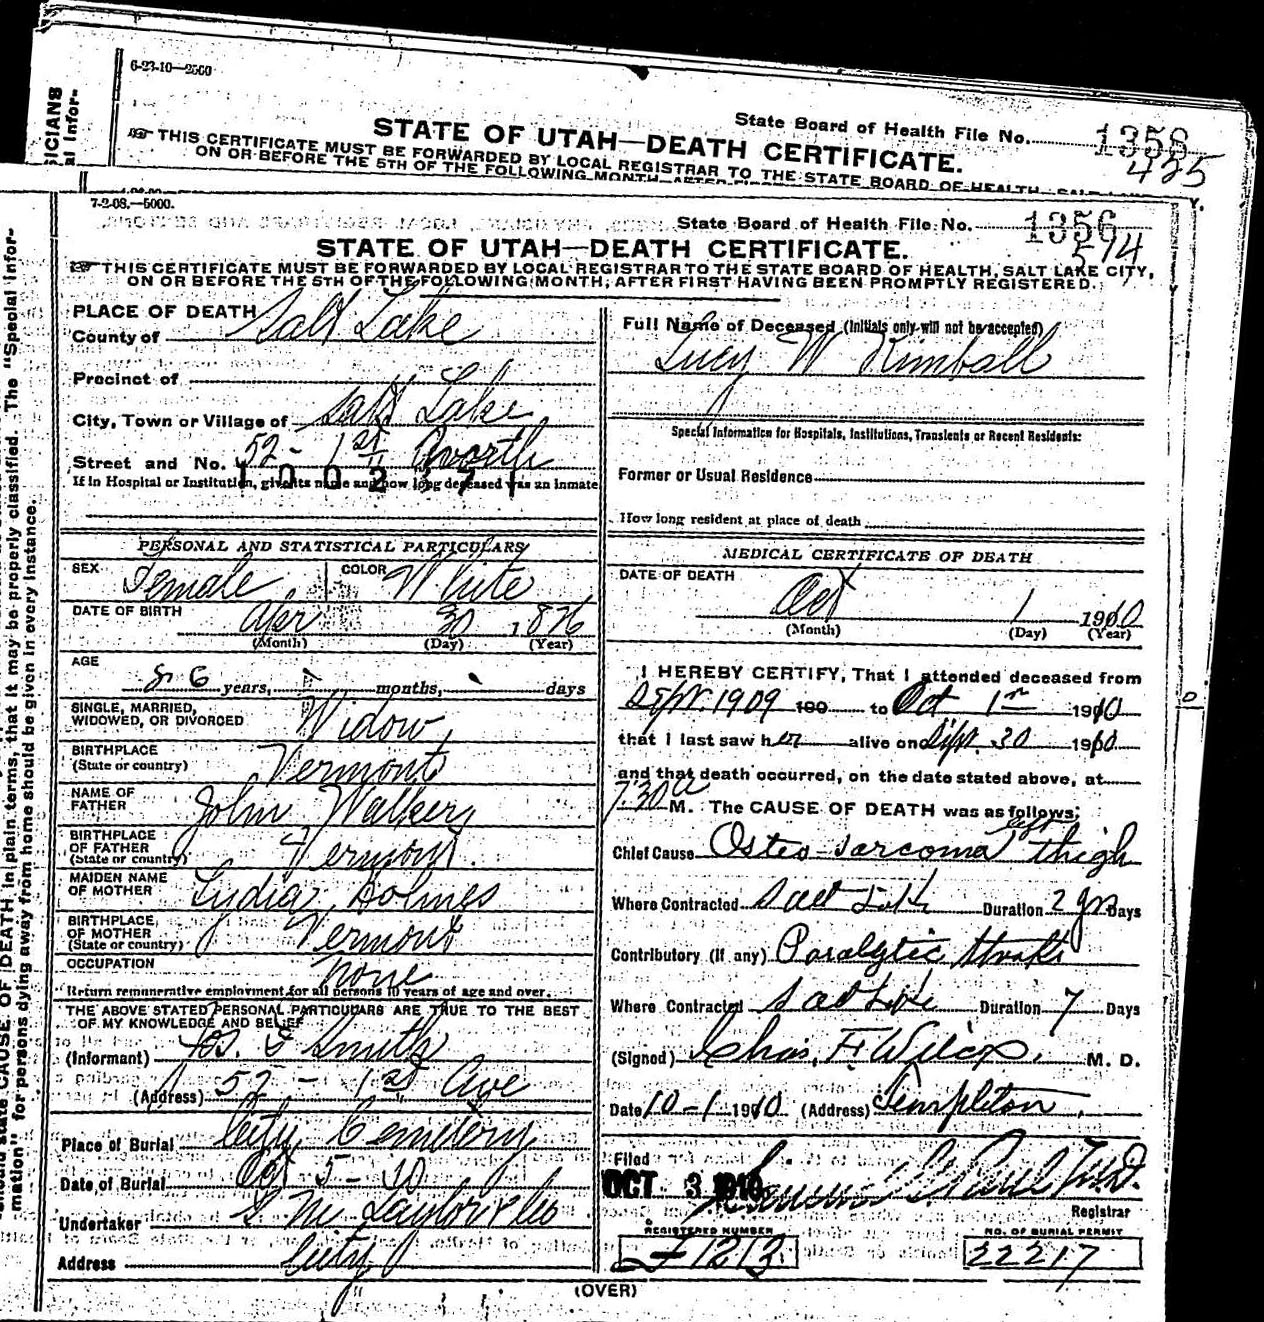 6-23-10—2500
State Board of Health File No. 1358
425
STATE OF UTAH—DEATH CERTIFICATE.
THIS CERTIFICATE MUST BE FORWARDED BY LOCAL REGISTRAR TO THE STATE BOARD OF HEALTH, SALT LAKE
ON OR BEFORE THE 5TH OF THE FOLLOWING MONTH, AFTER FIRST
ICIANS
al Infor-
7-2-08.—5000.
State Board of Health File No. 1356
514
STATE OF UTAH—DEATH CERTIFICATE.
THIS CERTIFICATE MUST BE FORWARDED BY LOCAL REGISTRAR TO THE STATE BOARD OF HEALTH, SALT LAKE CITY,
ON OR BEFORE THE 5TH OF THE FOLLOWING MONTH, AFTER FIRST HAVING BEEN PROMPTLY REGISTERED.
should state CAUSE OF DEATH in plain terms, that it may be properly classified. The "Special Infor-
mation" for persons dying away from home should be given in every instance.
PLACE OF DEATH
County of Salt Lake
Precinct of
City, Town or Village of Salt Lake
Street and No. 52 - 1st North
1002371
If in Hospital or Institution, give its name and how long deceased was an inmate
PERSONAL AND STATISTICAL PARTICULARS
SEX Female COLOR White
DATE OF BIRTH Apr 30 1826
(Month) (Day) (Year)
AGE
86 years, months, days
SINGLE, MARRIED,
WIDOWED, OR DIVORCED Widow
BIRTHPLACE
(State or country) Vermont
NAME OF
FATHER John Walker
BIRTHPLACE
OF FATHER
(State or country) Vermont
MAIDEN NAME
OF MOTHER Lydia Holmes
BIRTHPLACE
OF MOTHER
(State or country) Vermont
OCCUPATION none
Return remunerative employment for all persons 10 years of age and over.
THE ABOVE STATED PERSONAL PARTICULARS ARE TRUE TO THE BEST
OF MY KNOWLEDGE AND BELIEF
(Informant) Jos. F Smith
(Address) 52 - 1st Ave
Place of Burial City Cemetery
Date of Burial Oct 5-10
Undertaker S M Taylor & Co
Address City
Full Name of Deceased (Initials only will not be accepted)
Lucy W Kimball
Special Information for Hospitals, Institutions, Transients or Recent Residents:
Former or Usual Residence
How long resident at place of death
MEDICAL CERTIFICATE OF DEATH
DATE OF DEATH
Oct 1 1910
(Month) (Day) (Year)
I HEREBY CERTIFY, That I attended deceased from
Sept. 1909 190 to Oct 1st 1910
that I last saw her alive on Sept. 30 1910
and that death occurred, on the date stated above, at
7:30 a M. The CAUSE OF DEATH was as follows:
Chief Cause Osteo-sarcoma left thigh
Where Contracted Salt Lake Duration 2 yrs Days
Contributory (if any) Paralytic stroke
Where Contracted Salt Lake Duration 7 Days
(Signed) Chas. F. Wilcox. M. D.
Date 10-1-1910 (Address) Templeton.
Filed
OCT 3 1910 M.D.
Registrar
REGISTERED NUMBER
F1213
NO. OF BURIAL PERMIT
22217
(OVER)